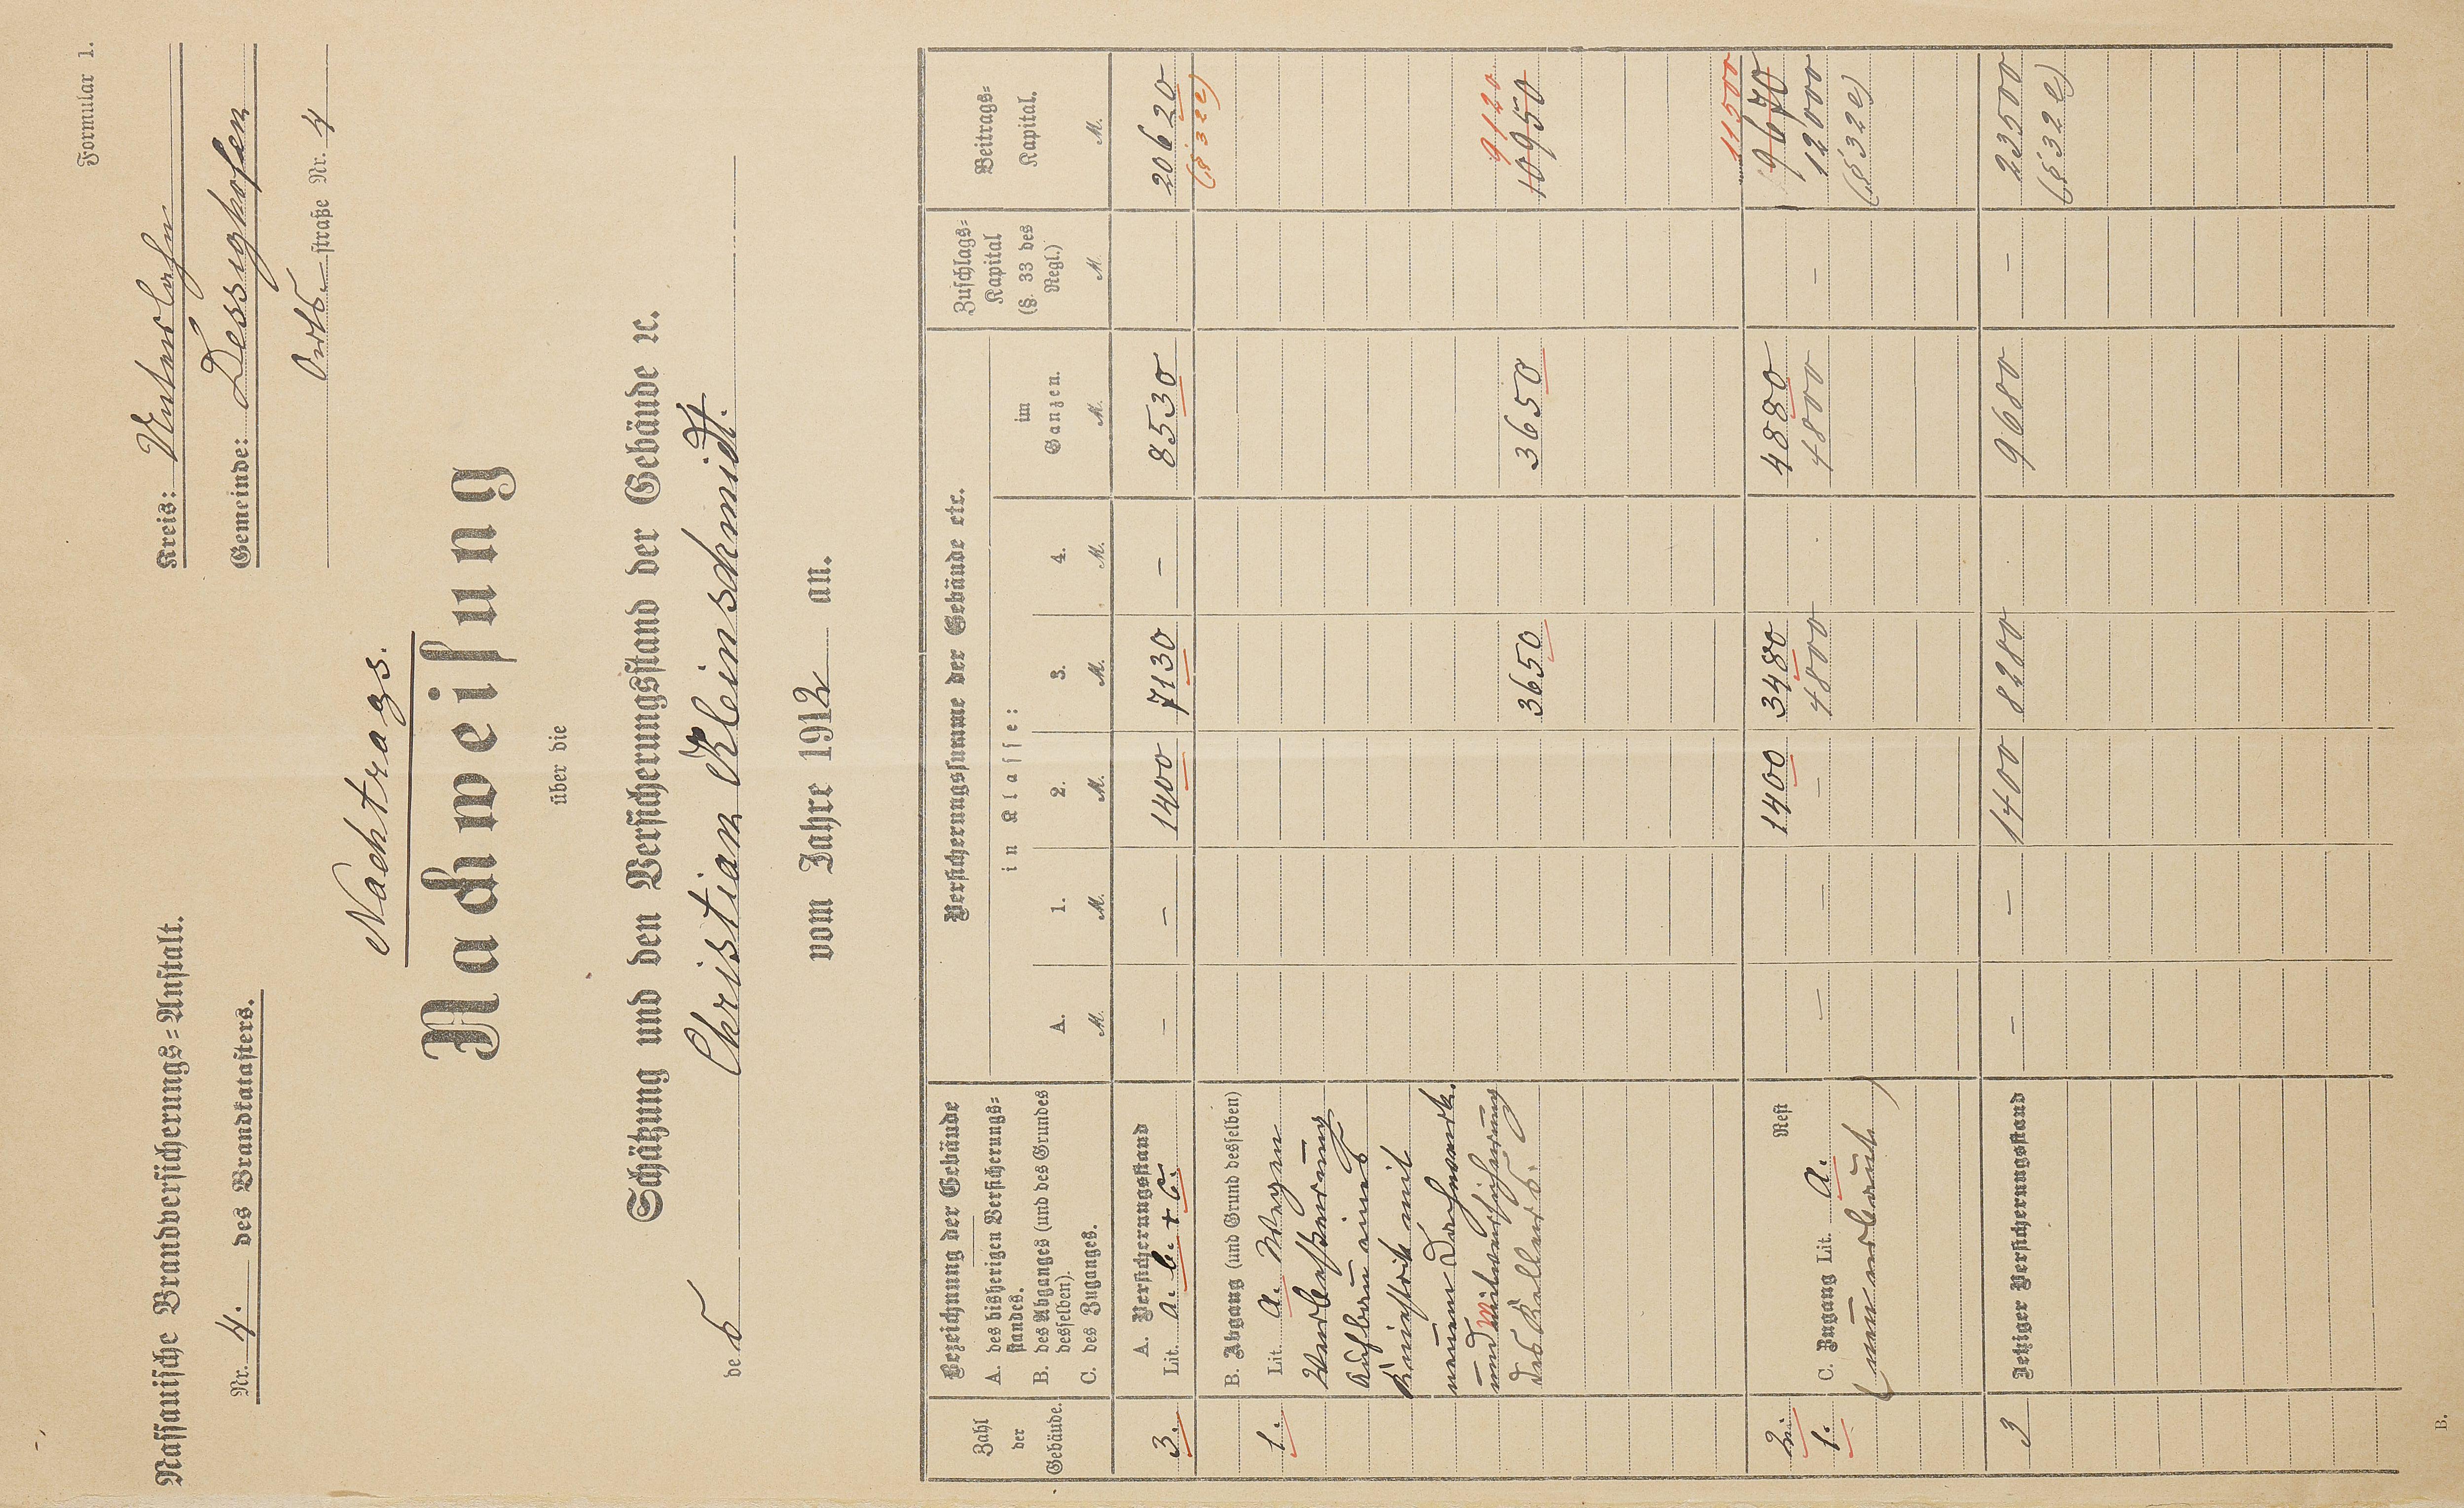 Formular 1.
Nassauische Brandversicherungs=Anstalt.
Nr. 4. des Brandkatasters.
Kreis: Unterlahn
Gemeinde: Dessighofen
Orts- straße Nr. 4
Nachtrags.
Nachweisung
über die
Schätzung und den Versicherungsstand der Gebäude ꝛc.
des Christian Kleinschmidt.
vom Jahre 1912 an.
Zahl der Gebäude.
Bezeichnung der Gebäude
A. des bisherigen Versicherungs=
standes.
B. des Abganges (und des Grundes
desselben).
C. des Zuganges.
Versicherungssumme der Gebäude etc.
in Klasse:
A. M.
1. M.
2. M.
3. M.
4. M.
im Ganzen. M.
Zuschlags=
Kapital
(§. 33 des
Regl.)
M.
Beitrags=
Kapital.
M.
A. Versicherungsstand
3. Lit. a. b. + c. – – 1400 7130 – 8530 20620
(§ 32 e)
B. Abgang (und Grund desselben)
1. Lit. a. Wegen
Verbesserung
Aufbau eines
Kniestock mit
neuem Dachwerk.
und Mitversicherung
des Kellers.
3650 3650 10950
9120
2. Rest 1400 3480 4880 9670
11500
1. C. Zugang Lit. a. – – – 4800 4800 – 12000
(neuerbaut) (§ 32 e)
3 Jetziger Versicherungsstand – – 1400 8280 9680 – 23500
(§ 32 e)
B.